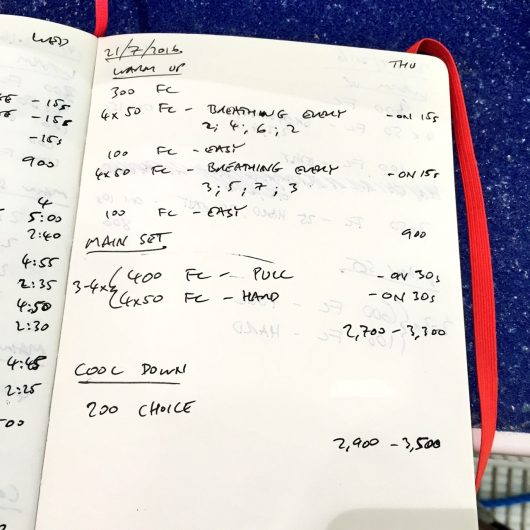 WED
- 15s
- 15s
- 15s
900
4
5:00
2:40
4:55
2:35
4:50
2:30
4:45
2:25
21/7/2016
THU
WARM UP
300 FC
4x 50 FC - BREATHING EVERY - ON 15s
2; 4; 6; 2
100 FC - EASY
4x50 FC - BREATHING EVERY - ON 15s
3; 5; 7; 3
100 FC - EASY
900
MAIN SET
3-4x ( 400 FC - PULL - ON 30s
( 4x50 FC - HARD - ON 30s
2,700 - 3,300
COOL DOWN
200 CHOICE
2,900 - 3,500